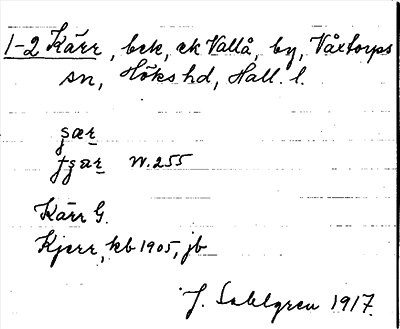 1-2 Kärr, bck, ek Vallå, by, Våxtorps
sn, Höks hd, Hall. l.
sær
fsær W. 255
Kärr G.
Kjerr, kb 1905, jb
J. Sahlgren 1917.